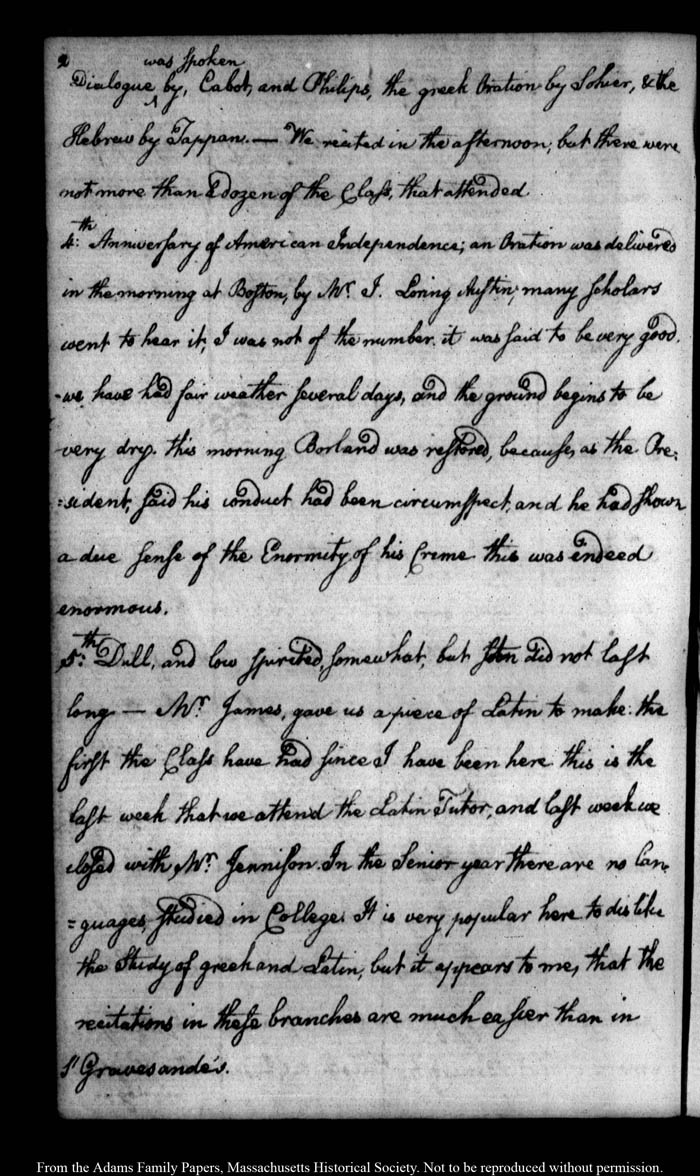 2
was spoken
Dialogue by, Cabot, and Philips, the greek Oration by Sohier, & the
Hebrew by Tappan. — We recited in the afternoon, but there were
not more than a dozen of the Class, that attended
4:th Anniversary of American Independence; an Oration was delivered
in the morning at Boston, by Mr. J. Loring Austin, many scholars
went to hear it; I was not of the number. it was said to be very good.
-we have had fair weather several days, and the ground begins to be
very dry. this morning Borland was restored, because, as the Pre:
:sident, said his conduct had been circumspect, and he had shown
a due sense of the Enormity of his Crime this was indeed
enormous.
5:th Dull, and low spirited, somewhat, but did not last
long — Mr. James, gave us a piece of Latin to make: the
first the Class have had since I have been here this is the
last week that we attend the Latin Tutor, and last week we
closed with Mr. Jennison. In the Senior year there are no lan-
=guages, studied in College. It is very popular here to dislike
the Study of greek and Latin, but it appears to me, that the
recitations in these branches are much easier than in
s' Gravesande's.
From the Adams Family Papers, Massachusetts Historical Society. Not to be reproduced without permission.